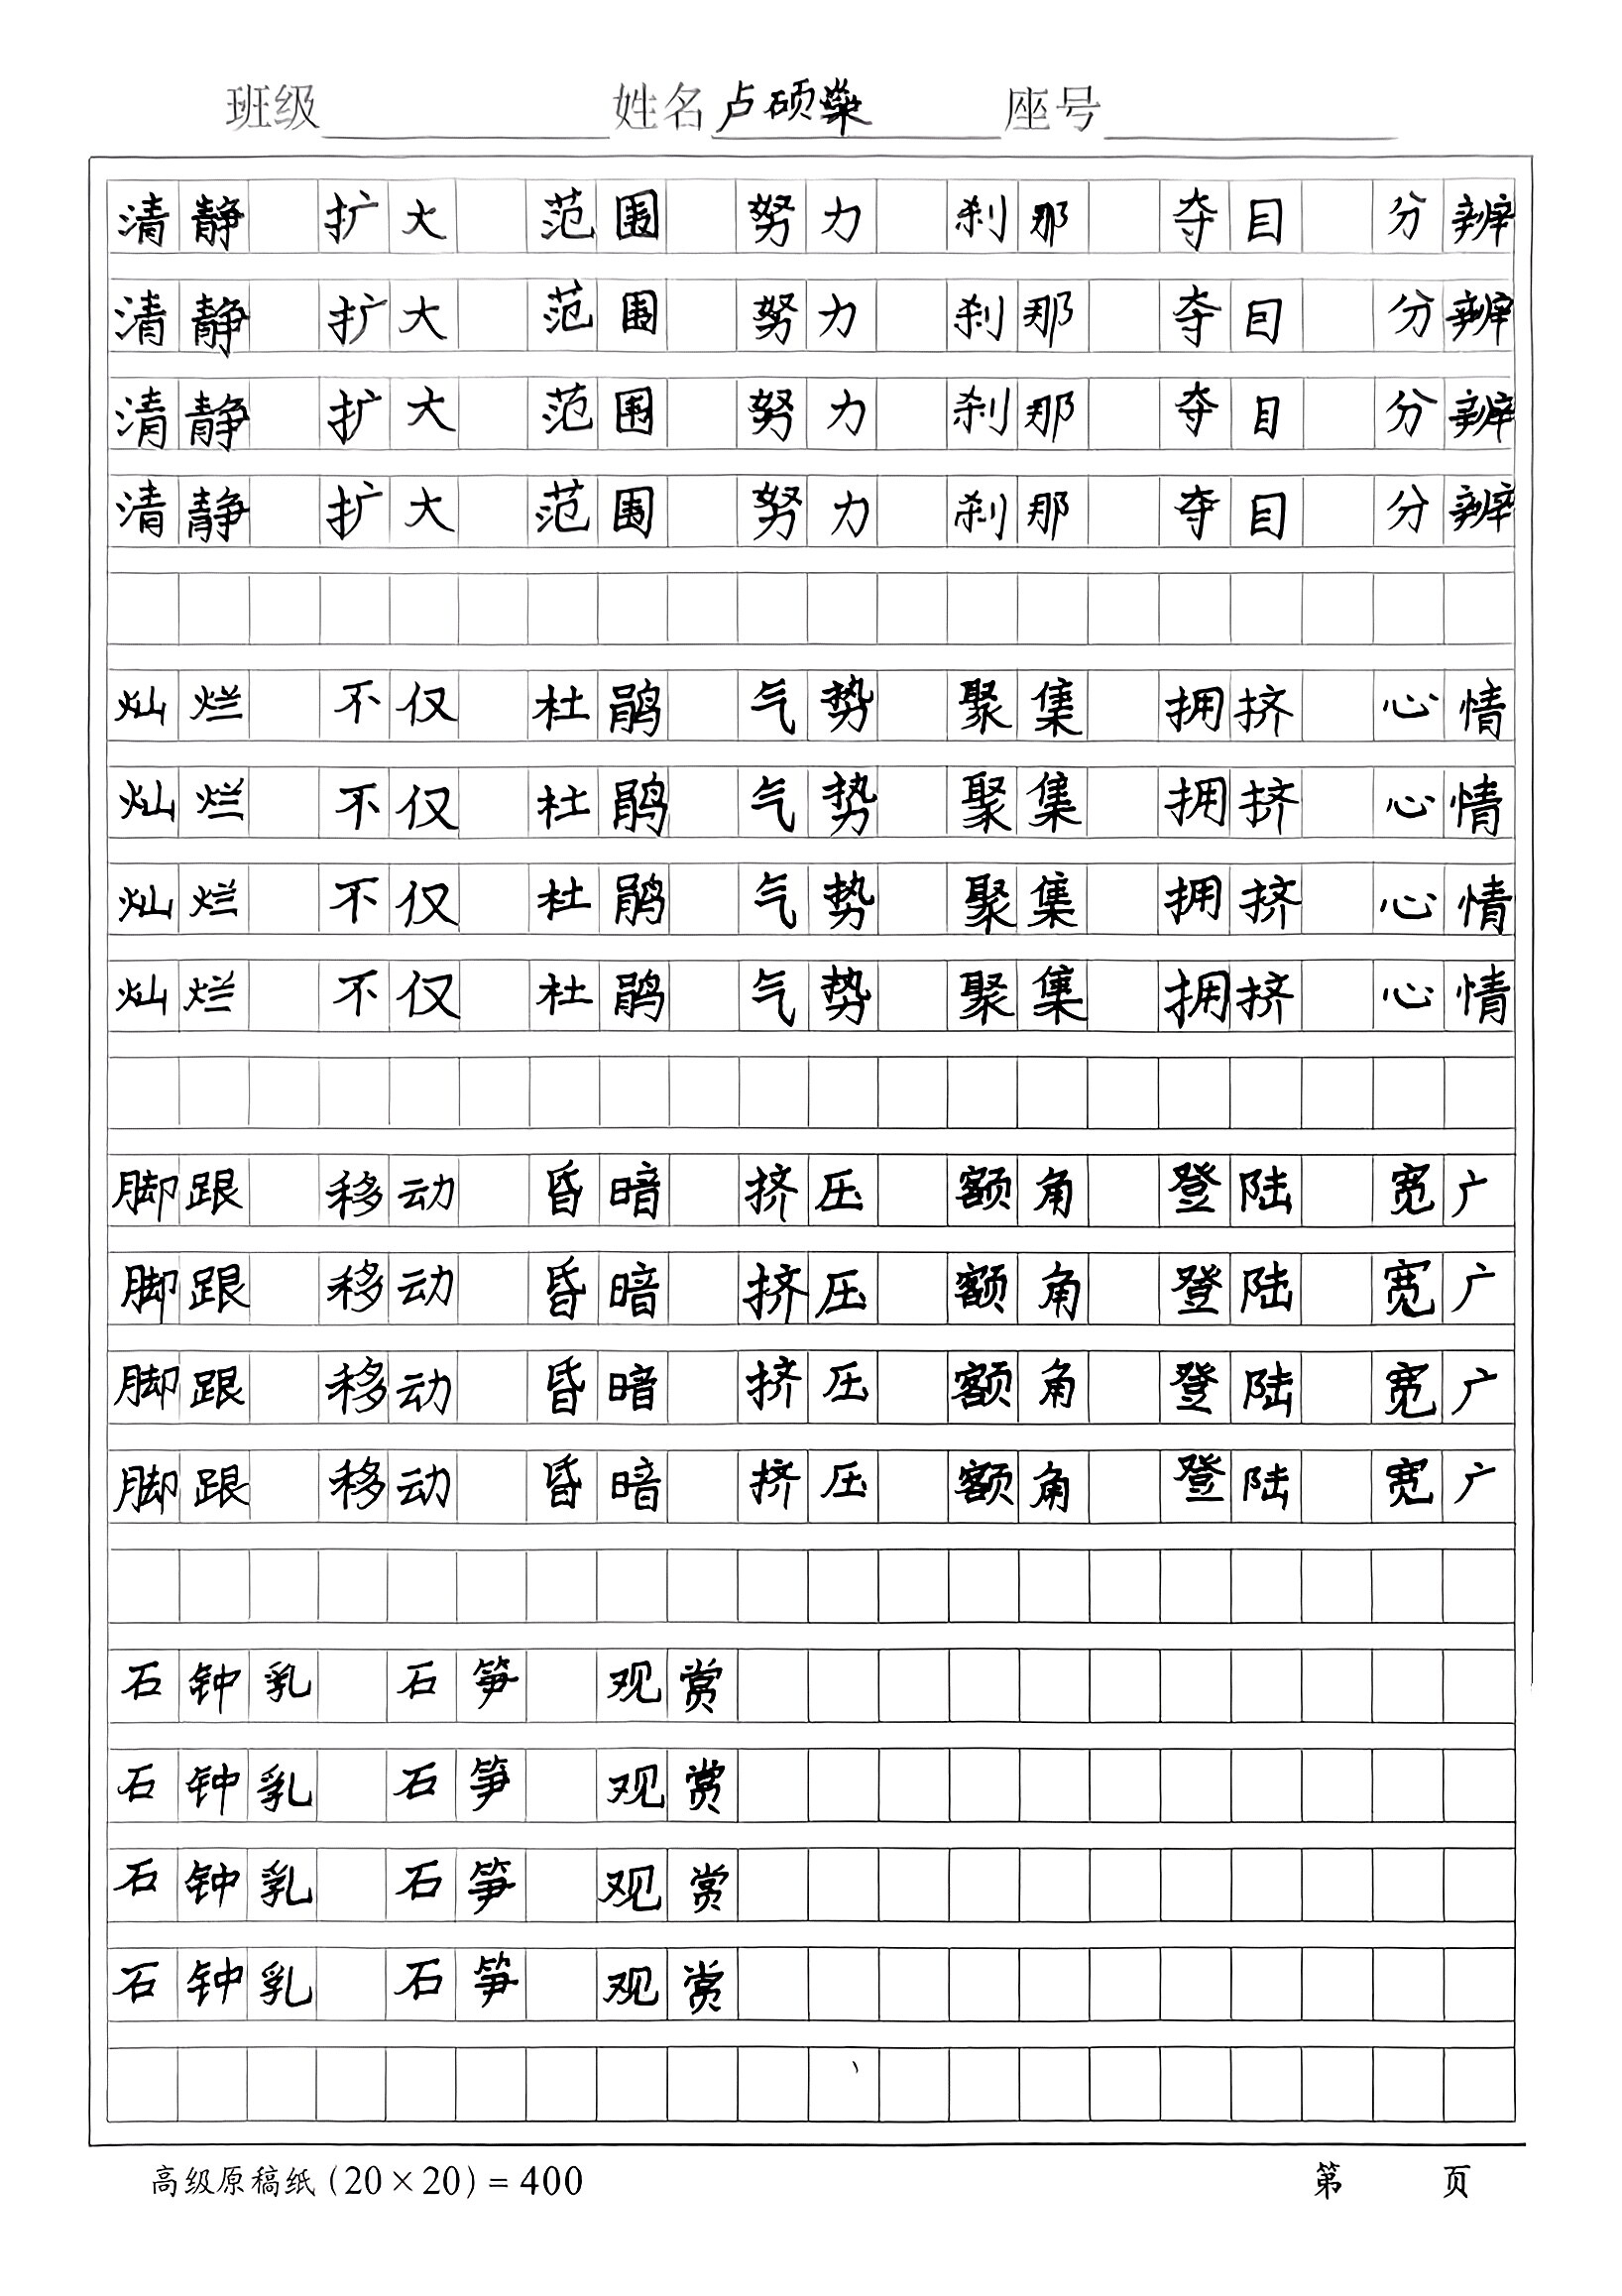 班级 姓名 卢硕 座号
清静 扩大 范围 努力 刹那 夺目 分辨
清静 扩大 范围 努力 刹那 夺目 分辨
清静 扩大 范围 努力 刹那 夺目 分辨
清静 扩大 范围 努力 刹那 夺目 分辨
灿烂 不仅 杜鹃 气势 聚集 拥挤 心情
灿烂 不仅 杜鹃 气势 聚集 拥挤 心情
灿烂 不仅 杜鹃 气势 聚集 拥挤 心情
灿烂 不仅 杜鹃 气势 聚集 拥挤 心情
脚跟 移动 昏暗 挤压 额角 登陆 宽广
脚跟 移动 昏暗 挤压 额角 登陆 宽广
脚跟 移动 昏暗 挤压 额角 登陆 宽广
脚跟 移动 昏暗 挤压 额角 登陆 宽广
石钟乳 石笋 观赏
石钟乳 石笋 观赏
石钟乳 石笋 观赏
石钟乳 石笋 观赏
高级原稿纸(20×20)=400 第 页